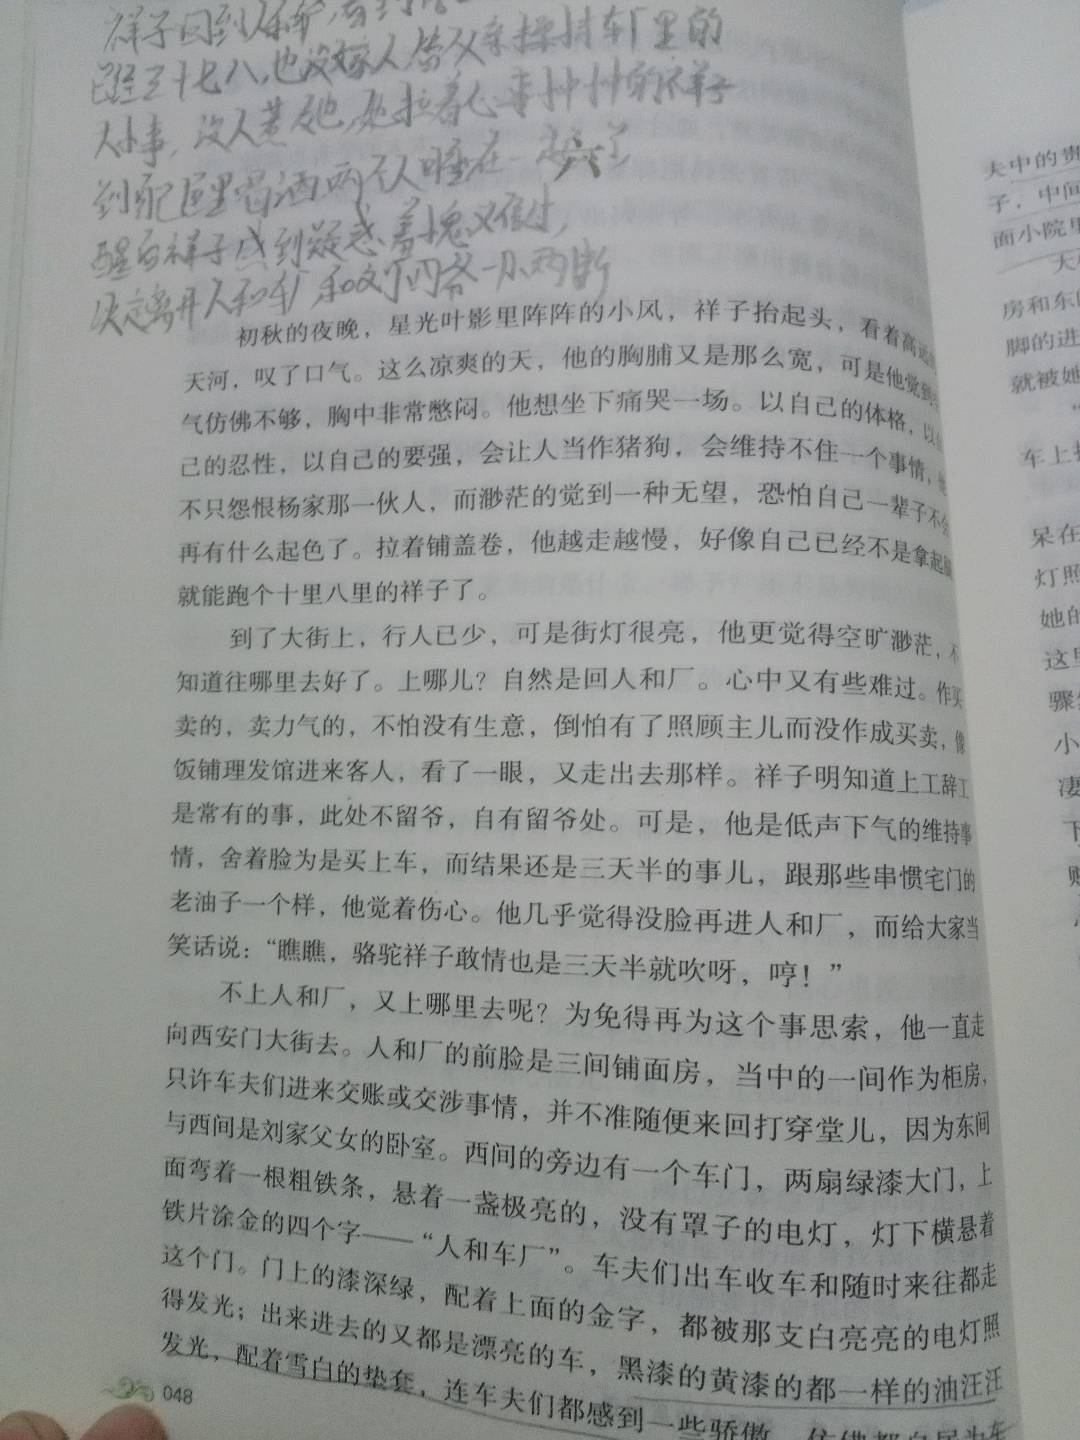 祥子回到
已经三十七八,也没嫁人,帮父亲操持车厂里的
人小事,没人惹她,她拉着心事忡忡的祥子
到配区里喝酒,两个人睡在一起了
醒后祥子感到疑惑、羞愧又
决定离开人和车厂,和刘四爷一小两断
初秋的夜晚，星光叶影里阵阵的小风，祥子抬起头，看着高远
天河，叹了口气。这么凉爽的天，他的胸脯又是那么宽，可是他觉到
气仿佛不够，胸中非常憋闷。他想坐下痛哭一场。以自己的体格，以
己的忍性，以自己的要强，会让人当作猪狗，会维持不住一个事情，他
不只怨恨杨家那一伙人，而渺茫的觉到一种无望，恐怕自己一辈子不会
再有什么起色了。拉着铺盖卷，他越走越慢，好像自己已经不是拿起腿
就能跑个十里八里的祥子了。
到了大街上，行人已少，可是街灯很亮，他更觉得空旷渺茫，不
知道往哪里去好了。上哪儿？自然是回人和厂。心中又有些难过。作买
卖的，卖力气的，不怕没有生意，倒怕有了照顾主儿而没作成买卖，像
饭铺理发馆进来客人，看了一眼，又走出去那样。祥子明知道上工辞工
是常有的事，此处不留爷，自有留爷处。可是，他是低声下气的维持事
情，舍着脸为是买上车，而结果还是三天半的事儿，跟那些串惯宅门的
老油子一个样，他觉着伤心。他几乎觉得没脸再进人和厂，而给大家当
笑话说：“瞧瞧，骆驼祥子敢情也是三天半就吹呀，哼！”
不上人和厂，又上哪里去呢？为免得再为这个事思索，他一直走
向西安门大街去。人和厂的前脸是三间铺面房，当中的一间作为柜房，
只许车夫们进来交账或交涉事情，并不准随便来回打穿堂儿，因为东间
与西间是刘家父女的卧室。西间的旁边有一个车门，两扇绿漆大门，上
面弯着一根粗铁条，悬着一盏极亮的，没有罩子的电灯，灯下横悬着
铁片涂金的四个字——“人和车厂”。车夫们出车收车和随时来往都走
这个门。门上的漆深绿，配着上面的金字，都被那支白亮亮的电灯照
得发光；出来进去的又都是漂亮的车，黑漆的黄漆的都一样的油汪汪
发光，配着雪白的垫套，连车夫们都感到一些骄傲，仿佛都自居为车
048
夫中的贵
子，中间
面小院里
房和东
脚的进
就被她
车上
呆在
灯照
她的
这里
骤
小
凄
下